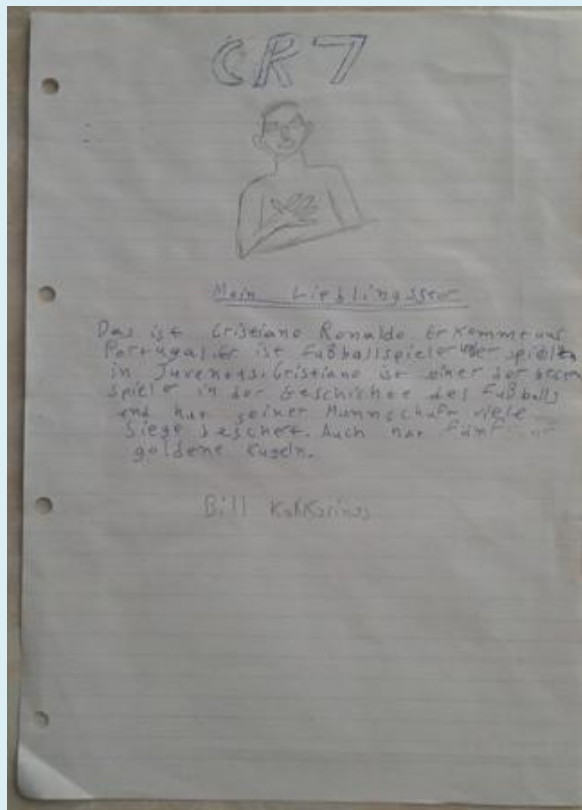 CR7
Mein Lieblingsstar
Das ist Cristiano Ronaldo. Er kommt aus
Portugal. Er ist Fußballspieler und er spielt
in Juventus. Cristiano ist einer der besten
spieler in der Geschichte des Fußballs
und hat seiner Mannschaft viele
Siege beschert. Auch hat fünf
goldene Kugeln.
Bill